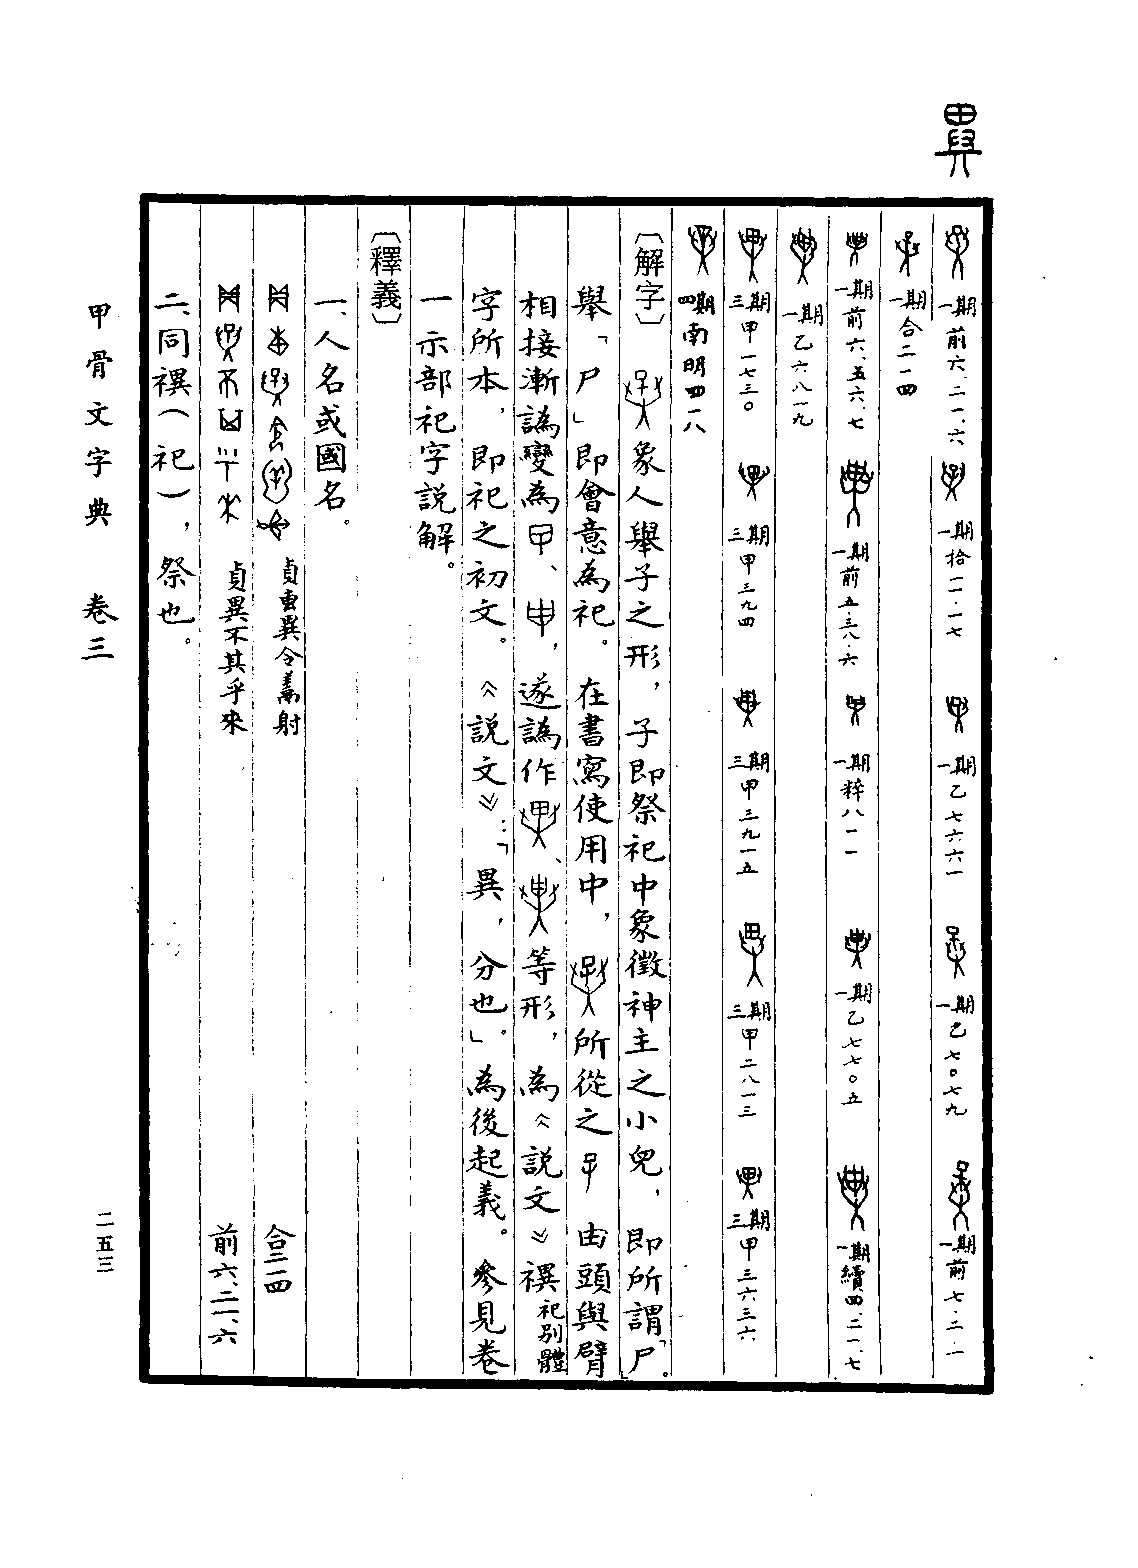 異
一期前六.二一.六
一期拾一一.一七
一期乙七六六一
一期乙七〇七九
一期前七.二.一
一期合二一四
一期前六.五六.七
一期前五.三八.六
一期粹八一一
一期乙七七〇五
一期續四.二一.七
一期乙六八一九
三期甲一七三〇
三期甲三九四
三期甲三九一五
三期甲二八一三
三期甲三六三六
四期南明四一八
〔解字〕象人舉子之形，子即祭祀中象徵神主之小兒，即所謂「尸」。
舉「尸」即會意為祀。在書寫使用中，所從之由頭與臂
相接漸譌變為、，遂譌作、等形，為《說文》禩祀別體
字所本，即祀之初文。《說文》：「異，分也」。為後起義。參見卷
一示部祀字說解。
〔釋義〕
一、人名或國名。
貞叀異令䍩射 合二一四
貞異不其乎來 前六.二一.六
二、同禩（祀），祭也。
甲骨文字典 卷三
二五三